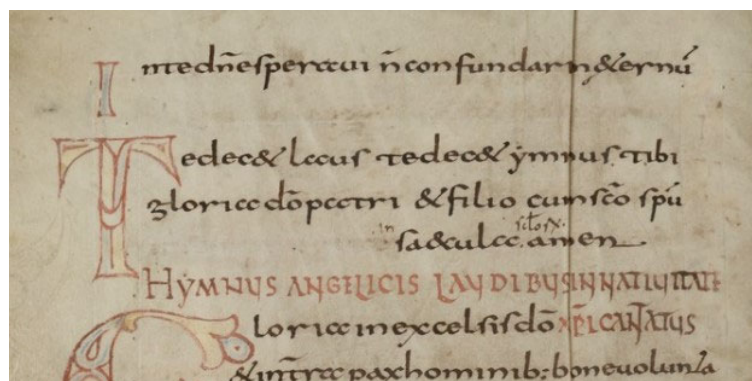 In te dn̄e speravi n̄ confundar in &ernū
Te dec& laus te dec& ẏmnus tibi
gloria dō patri & filio cum scō spū
in saecula sclōs̄ amen
HẎMNUS ANGELICIS LAUDIBUS IN NATIVITATE
Gloria in excelsis dō XPI CANTATUS
& in terra pax hominib: bone volunta